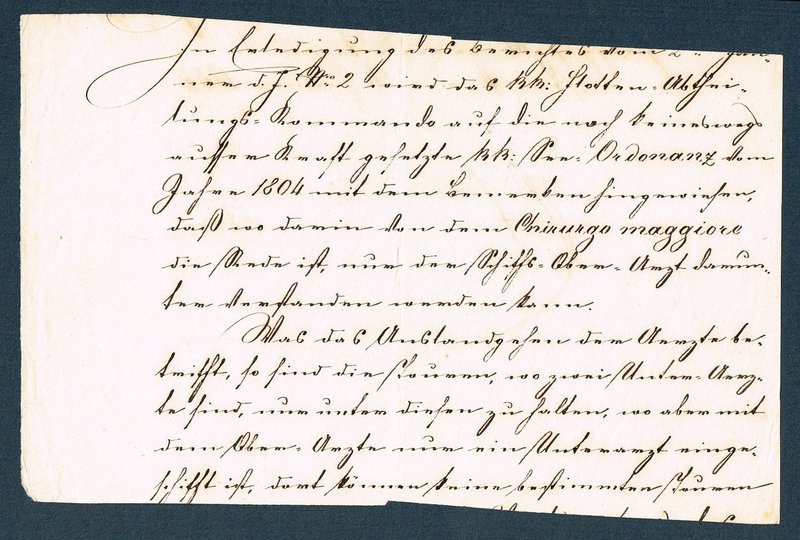 In Erledigung des Berichtes vom 2ⁿ Jän-
ner d. J. Nro 2 wird das kk: Flotten-Abthei-
lungs-Kommando auf die noch keineswegs
ausser Kraft gesetzte kk: See-Ordonanz vom
Jahre 1804 mit dem Bemerken hingewiesen,
daß wo darin von dem Chirurgo maggiore
die Rede ist, nur der Schiffs-Ober-Arzt darun-
ter verstanden werden kann.
Was das Anslandgehen der Aerzte be-
trifft, so sind die Touren, wo zwei Unter-Aerz-
te sind, nur unter diesen zu halten, wo aber mit
dem Ober-Arzte nur ein Unterarzt einge-
schifft ist, dort können keine bestimmten Touren